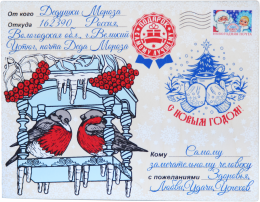 От кого Дедушки Мороза
Откуда 162390, Россия,
Вологодская обл., г. Великий
Устюг, почта Деда Мороза
С НОВЫМ ГОДОМ!
Кому Самому
замечательному человеку
с пожеланиями Здоровья,
Любви, Удачи, Успехов